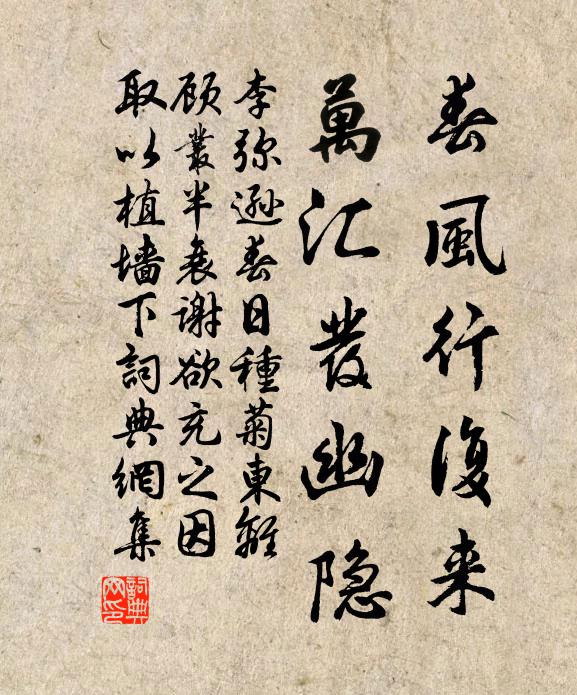 春風行復来
萬汇發幽隐
李弥遜春日種菊東籬
顾叢半衰谢欲充之因
取以植墙下詞典網集
詞典网印